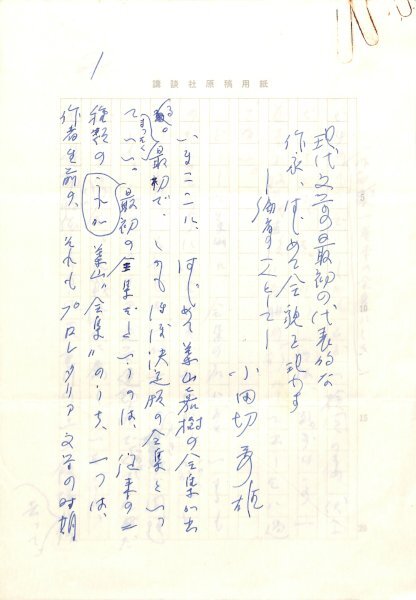 講談社原稿用紙
1
現代文学の最初の代表的な
作家、はじめて全貌を現わす
―編者の一人として―
小田切秀雄
いまここに、はじめて葉山嘉樹の全集が出
る。最初で、しかもほぼ決定版の全集といっ
まったく
ていい。最初の全集をというのは、従来の二
種類の これが 葉山"全集"のうち、一つは、
作者生前の、それもプロレタリア文学の時期
5
10
15
20